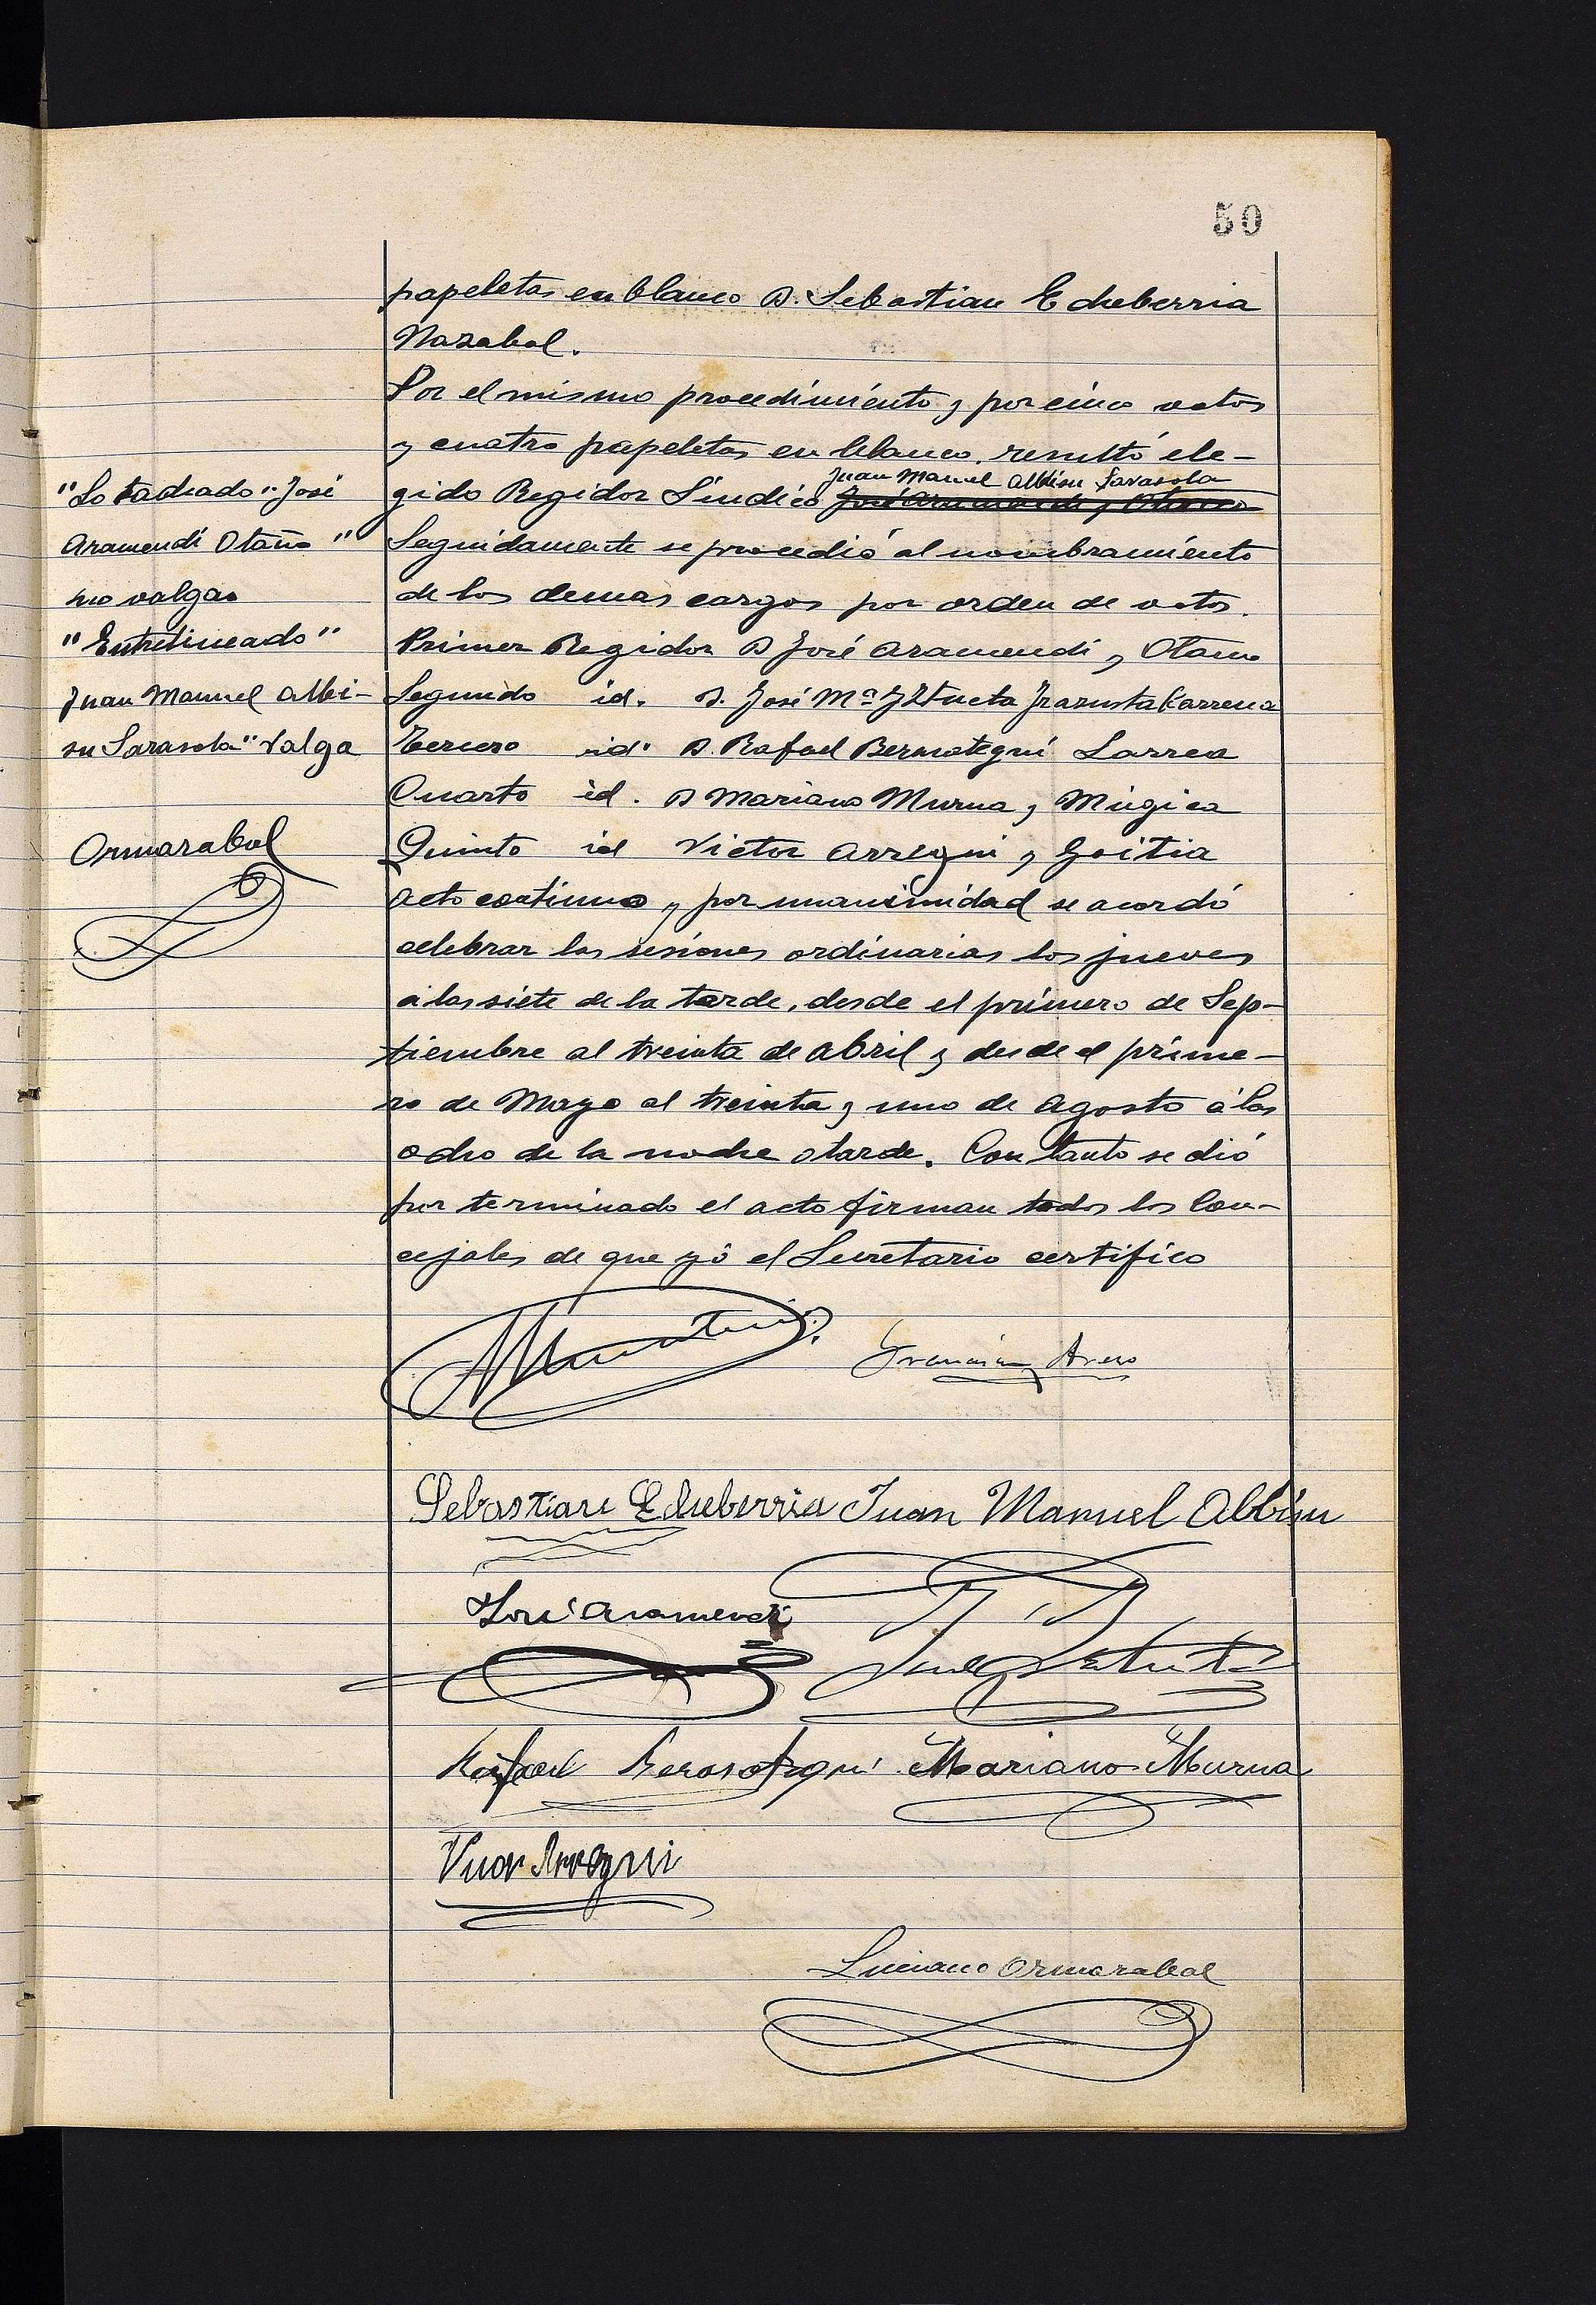 50
papeletas en blanco D. Sebastian Echeberria
Nazabal.
Por el mismo procedimiento y por cinco votos
y cuatro papeletas en blanco, resultó ele-
Juan Manuel Albisu Sarasola
gido Regidor Síndico José Aramendi y Otaño
Seguidamente se procedió al nombramiento
de los demas cargos por orden de votos.
Primer Regidor D José Aramendi y Otaño
Segundo id. D. José Mª Iztueta Irazustabarrena
Tercero id. D. Rafael Berasategui Larrea
Cuarto id. D Mariano Murua y Múgica
Quinto id Victor Arregui y Goitia
Acto continuo y por unanimidad se acordó
celebrar las sesiones ordinarias los jueves
a las siete de la tarde, desde el primero de Sep-
tiembre al treinta de Abril y desde el prime-
ro de Mayo al treinta y uno de Agosto á las
ocho de la noche o tarde. Con tanto se dió
por terminado el acto firman todos los Con-
cejales de que yó el Secretario certifico
"Lo tachado" José
Aramendi Otaño"
no valga
"Entrelineado"
Juan Manuel Albi-
su Sarasola" valga
Ormazabal
Sebastian Echeberria Juan Manuel Albisu
José Aramendi
Rafael Berasategui Mariano Murua
Victor Arregui
Luciano Ormazabal